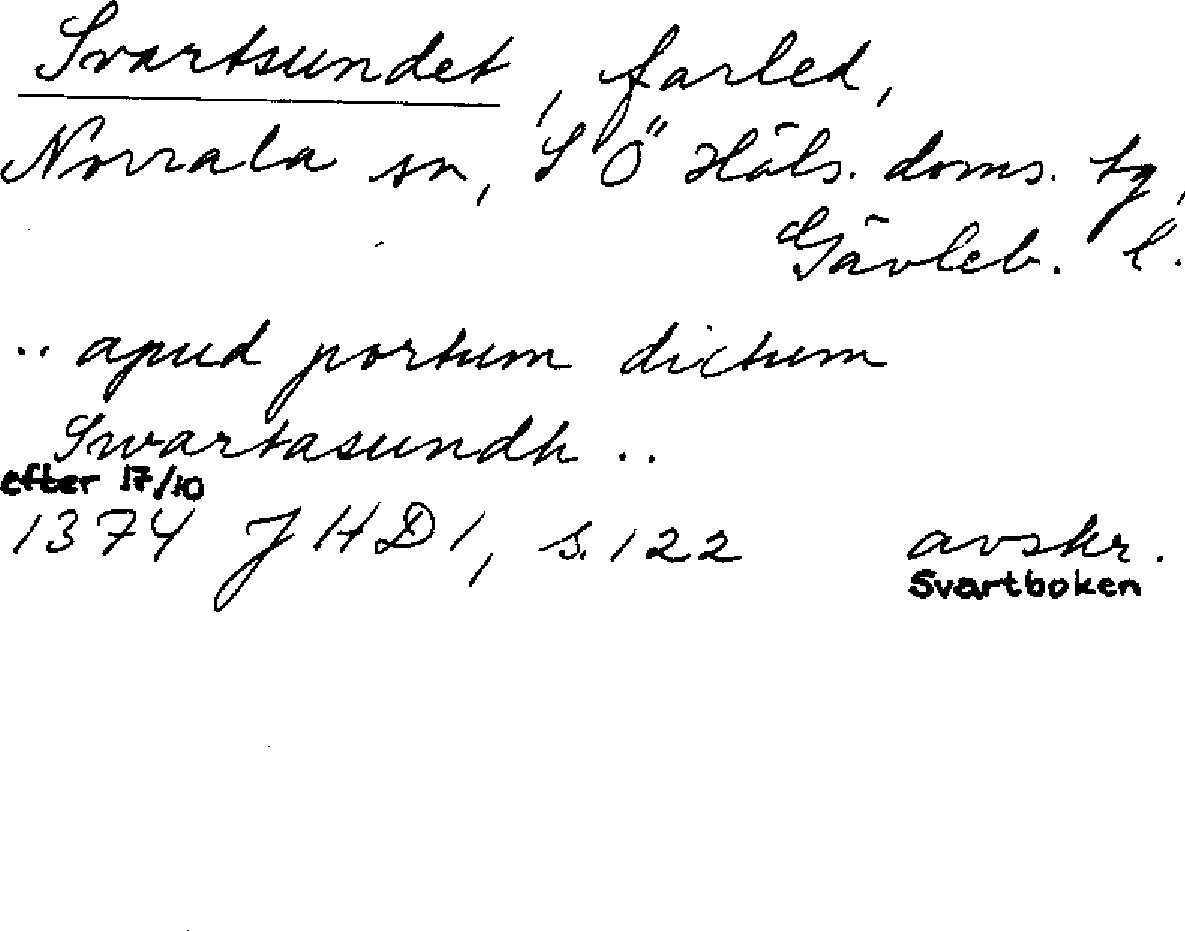 Svartsundet, farled,
Norrala sn, S Ö Häls. doms. tg,
Gävleb. l.
.. apud portum dictum
Swartasundh ..
efter 17/10
1374 JHD 1, s. 122 avskr.
Svartboken